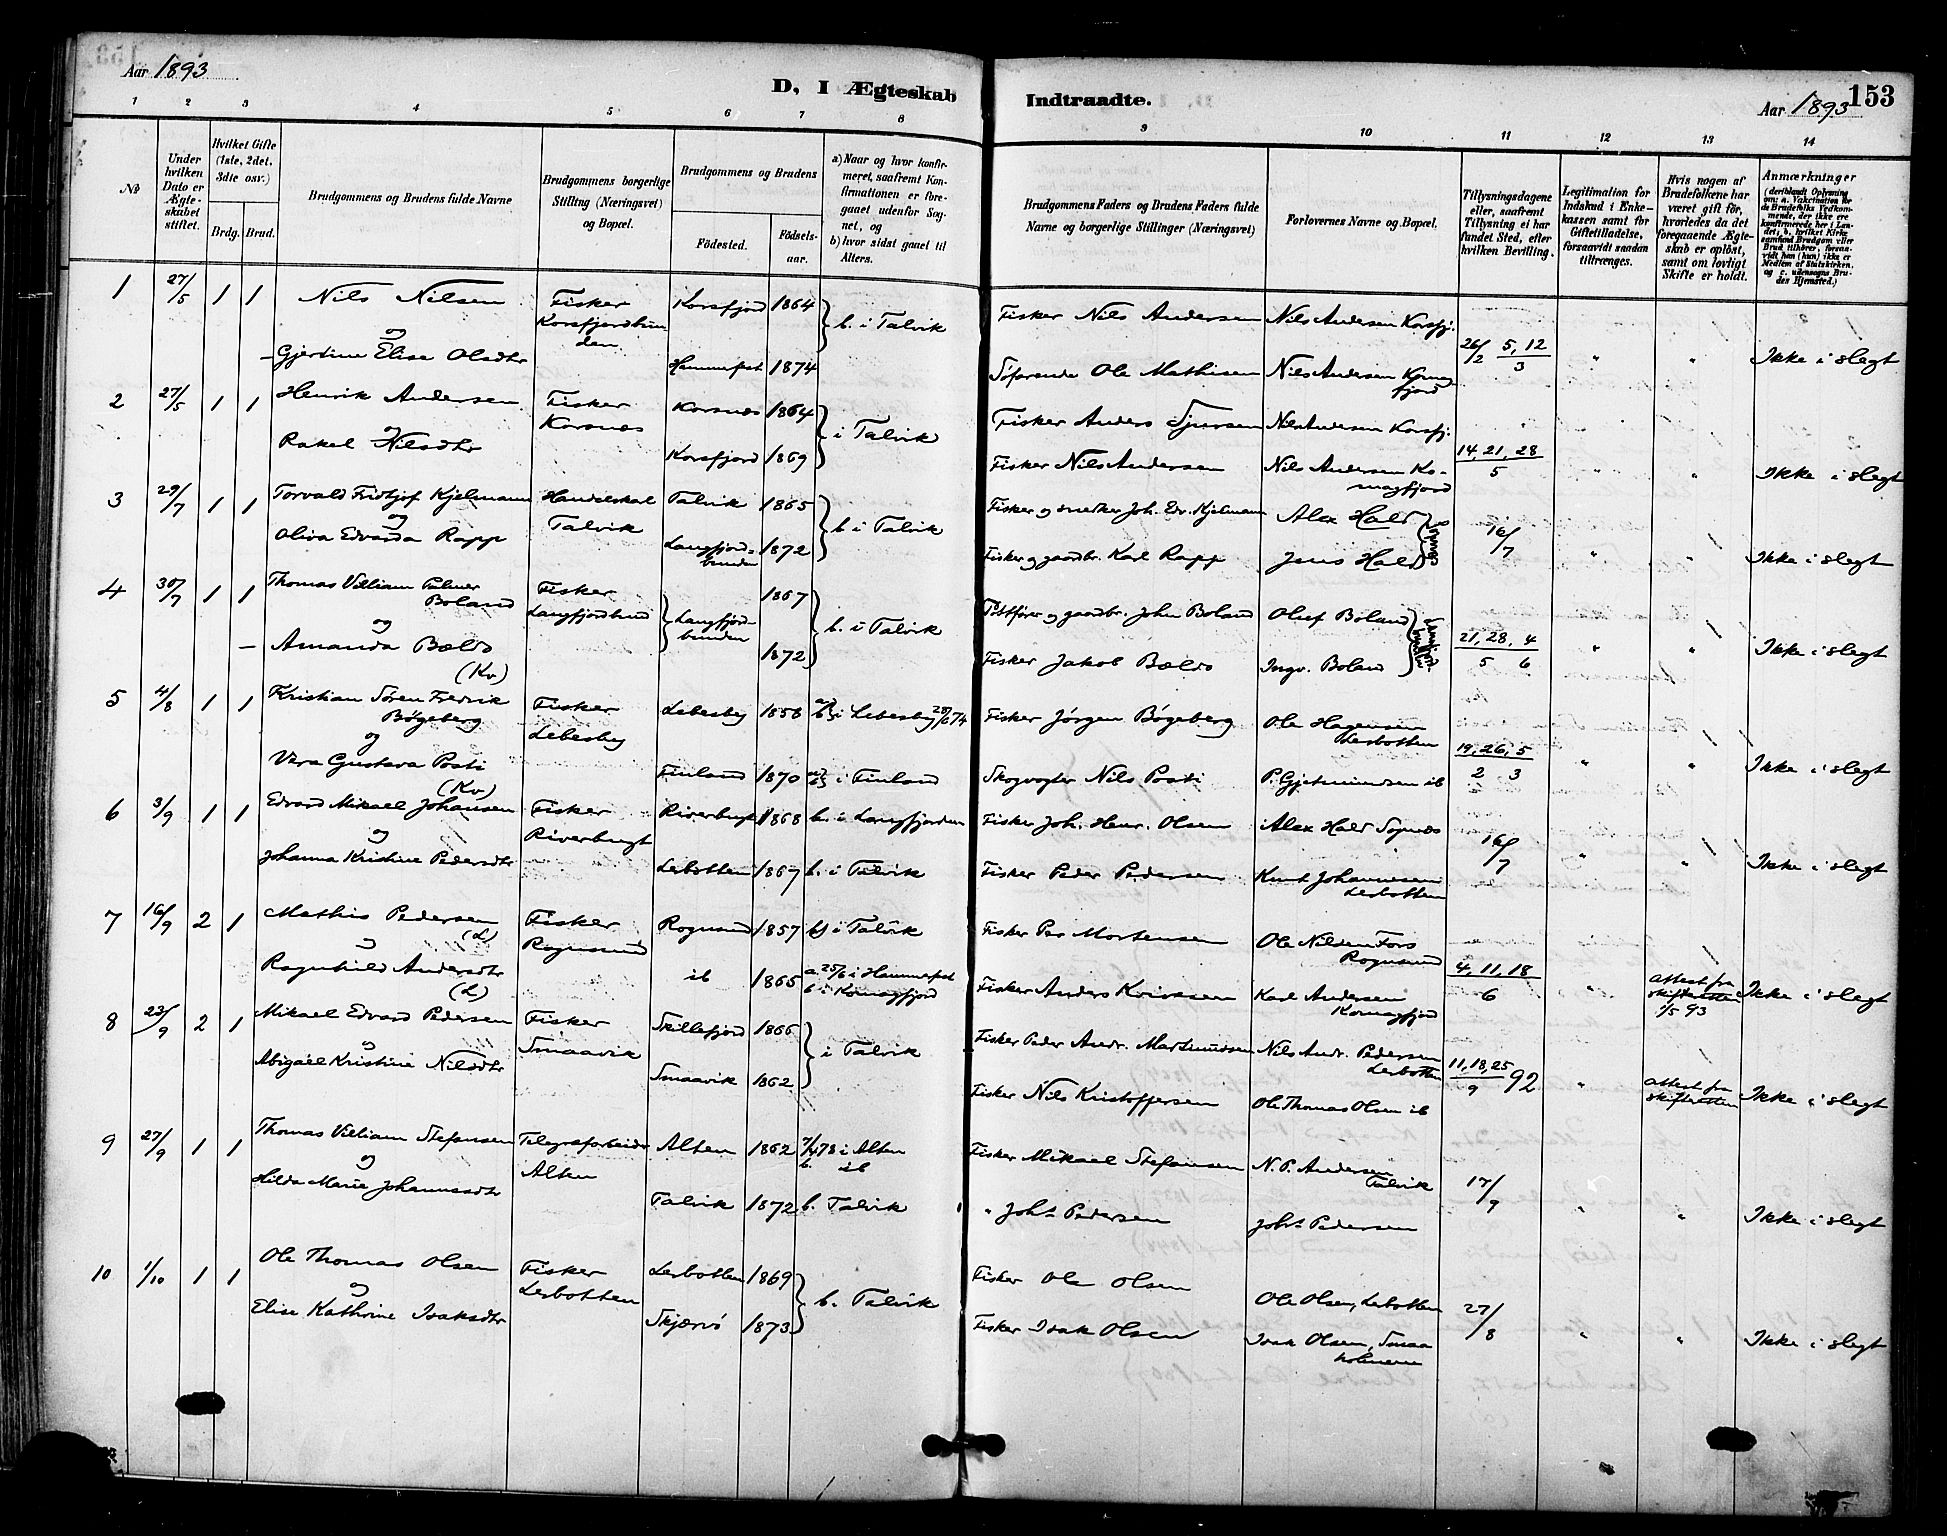 Aar 1893
D, I Ægteskab Indtraadte.
Aar 1893
153
1 2 3 4 5 6 7 8 9 10 11 12 13 14
No
Under hvilken Dato er Ægteskabet stiftet.
Hvilket Gifte (1ste, 2det, 3die osv.)
Brdg. Brud.
Brudgommens og Brudens fulde Navne
Brudgommens borgerlige Stilling (Næringsvei) og Bopæl.
Brudgommens og Brudens
Fødested. Fødselsaar.
a) Naar og hvor konfirmeret, saafremt Konfirmationen er foregaaet udenfor Sognet, og
b) hvor sidst gaaet til Alters.
Brudgommens Faders og Brudens Faders fulde Navne og borgerlige Stillinger (Næringsvei)
Forlovernes Navne og Bopæl.
Tillysningsdagene eller, saafremt Tillysning ei har fundet Sted, efter hvilken Bevilling.
Legitimation for Indskud i Enkekassen samt for Giftetilladelse, forsaavidt saadan tiltrænges.
Hvis nogen af Brudefolkene har været gift før, hvorledes da det foregaaende Ægteskab er opløst, samt om lovligt Skifte er holdt.
Anmærkninger
1 27/5 1 1 Nils Nilsen Fisker Korsfjordbunden Korsfjord 1864 b. i Talvik Fisker Nils Andersen Nils Andersen Korsfj. 26/2 5, 12/3
og
Gjertine Elisa Olsdtr Hammerfest 1874 Søfarende Ole Mathisen Nils Andersen Komagfjord " " Ikke i slegt
2 27/5 1 1 Henrik Andersen Fisker Korsnes Korsnes 1864 i Talvik Fisker Anders Sjursen Nils Andersen Korsfj. 14, 21, 28/5
og
Rakel Nilsdtr Korsfjord 1869 Fisker Nils Andersen Nils Andersen Komagfjord " " Ikke i slegt
3 29/7 1 1 Torvald Fridtjof Kjelmann Handelskarl Talvik Talvik 1865 b i Talvik Fisker og snedker Joh. Edv. Kjelmann Alex Hald 16/7
og
Oliva Edvarda Rapp Langfjordbunden 1872 Fisker og gaardbr. Karl Rapp Jens Hald " " Ikke i slegt
4 30/7 1 1 Thomas Villiam Palmer Boland Fisker Langfjordbund Langfjordbunden 1867 b. i Talvik Postfører og gaardbr. John Boland Oluf Boland 21, 28, 4/5 6
og
Amanda Bældo (Kv) 1872 Fisker Jakob Bældo Ingv. Boland " " Ikke i slegt
5 4/8 1 1 Kristian Søren Fredrik Bøgeberg Fisker Lebesby Lebesby 1858 i Lebesby Fisker Jørgen Bøgeberg Ole Hagensen Lerbotten 19, 26, 5/2 3
og
Vera Gustava Posti (Kv) Finland 1870 i Finland Skogvogter Nils Posti P. Gjetmundsen ib " " Ikke i slegt
6 3/9 1 1 Edvard Mikael Johansen Fisker Riverbugt Riverbugt 1868 b. i Langfjorden Fisker Joh. Henr. Olsen Alex Hald Sopnes 16/7
og
Johanna Kristine Pedersdtr Lerbotten 1867 b. i Talvik Fisker Peder Pedersen Knut Johannesen Lerbotten " " Ikke i slegt
7 16/9 2 1 Mathis Pedersen (L) Fisker Rognsund Rognsund 1857 b) i Talvik Fisker Per Mortensen Ole Nilsen Fors Rognsund 4, 11, 18/6
og
Ragnhild Andersdtr (L) ib 1865 a. 25/6 i Hammerfest b i Komagfjord Fisker Anders Karl Andersen Komagfjord " Attest fra skifteretten 1/5 93 Ikke i slegt
8 23/9 2 1 Mikael Edvard Pedersen Fisker Smaavik Skillefjord 1866 i Talvik Fisker Peder Andr. Nils Andr. Pedersen Lerbotten 11, 18, 25/9 92
og
Abigael Kristine Nilsdtr Smaavik 1862 Fisker Nils Kristoffersen Ole Thomas Olsen ib " Attest fra skifteretten Ikke i slegt
9 27/9 1 1 Thomas Villiam Stefansen Telegrafarbeider Alten Alten 1862 78 i Alten b. ib Fisker Mikael Stefansen N. P. Andersen Talvik 17/9
og
Hilda Marie Johannesdtr Talvik 1872 b. Talvik " Johs Pedersen Johs Pedersen " " Ikke i slegt
10 1/10 1 1 Ole Thomas Olsen Fisker Lerbotten Lerbotten 1869 b. Talvik Fisker Ole Olsen Ole Olsen, Lerbotten 27/8
og
Elise Kathrine Isaksdtr Skjervö 1873 Fisker Isak Olsen Isak Olsen, Smaaholmerne " " Ikke i slegt